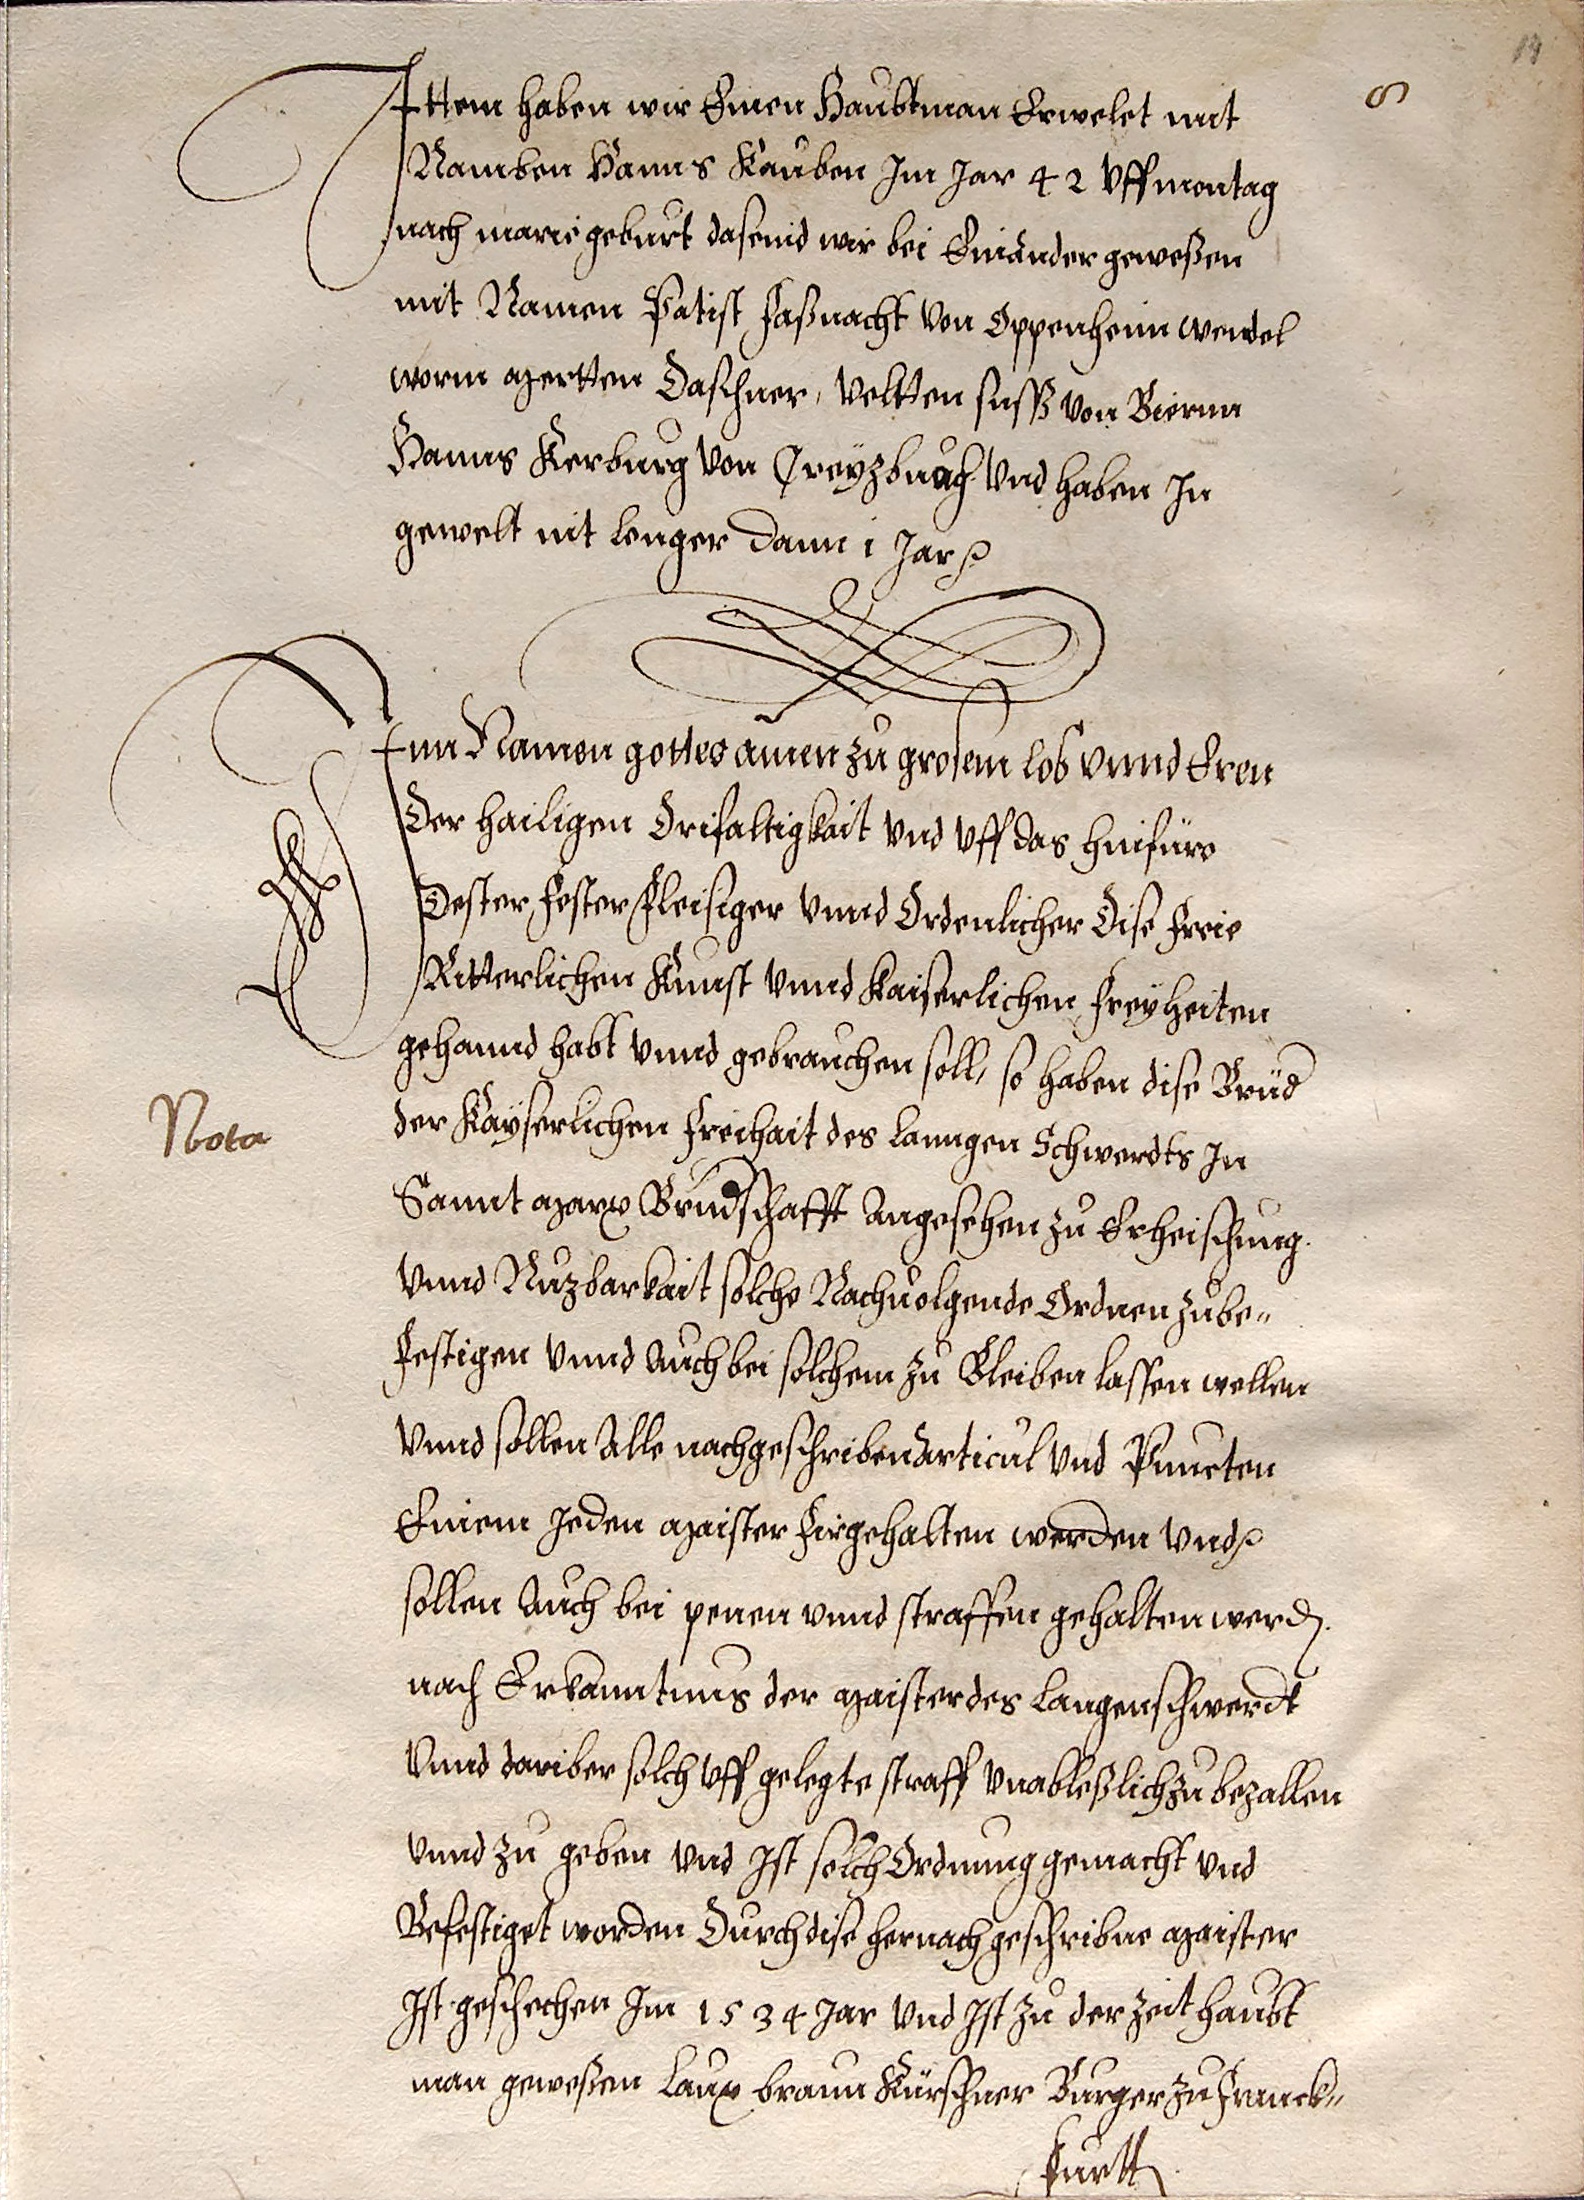 14
8
Ittem haben wir Einen Haubtman Erwelet mit
Namben Hanns Kauben Im Jar 42 vff montag
nach marie geburt da seind wir bei Einander geweßen
mit Namen Patist Faßnacht von Oppenheim Wendel
worm Mertten Daschner, Veltten suss von
Hanns Kerburg von Creyzbnach vnd haben In
gewelt nit lenger dann i Jar
Inn Namen gottes amen zu grosem lob vnnd Eren
Der hailigen Drifaltigkait vnd vff das hinfüro
Dester fester fleisiger vnnd Ordenlicher Dise freie
Ritterlichen Kunst vnnd Kaiserlichen Freyheiten
gehannd habt vnnd gebrauchen soll, so haben dise Brüd
Nota
der Kayserlichen Freihait des lanngen Schwerdts In
Sannt Marx Brudschafft Angesehen zu Erheischung
vnnd Nuzbarkait solche Nachuolgende Ordnen zu be„
festigen vnnd Auch bei solchem zu Bleiben lassen wellen
vnnd sollen Alle nachgeschriben Articul vnd Puncten
Einem Jeden Maister firgehalten werden vnd
sollen Auch bei penen vnnd straffen gehalten werd
nach Erkanntnus der Maister des langen schwerdt
vnnd dariber solch vff gelegte straff vnableßlich zu bezallen
vnnd zu geben vnd Ist solch Ordnung gemacht vnd
Befestiget worden Durch dise hernach geschribne Maister
Ist geschechen Im 1534 Jar vnd Ist zu der Zeit haubt
man geweßen Laux braun Kürschner Burger zu Franck„
furtt